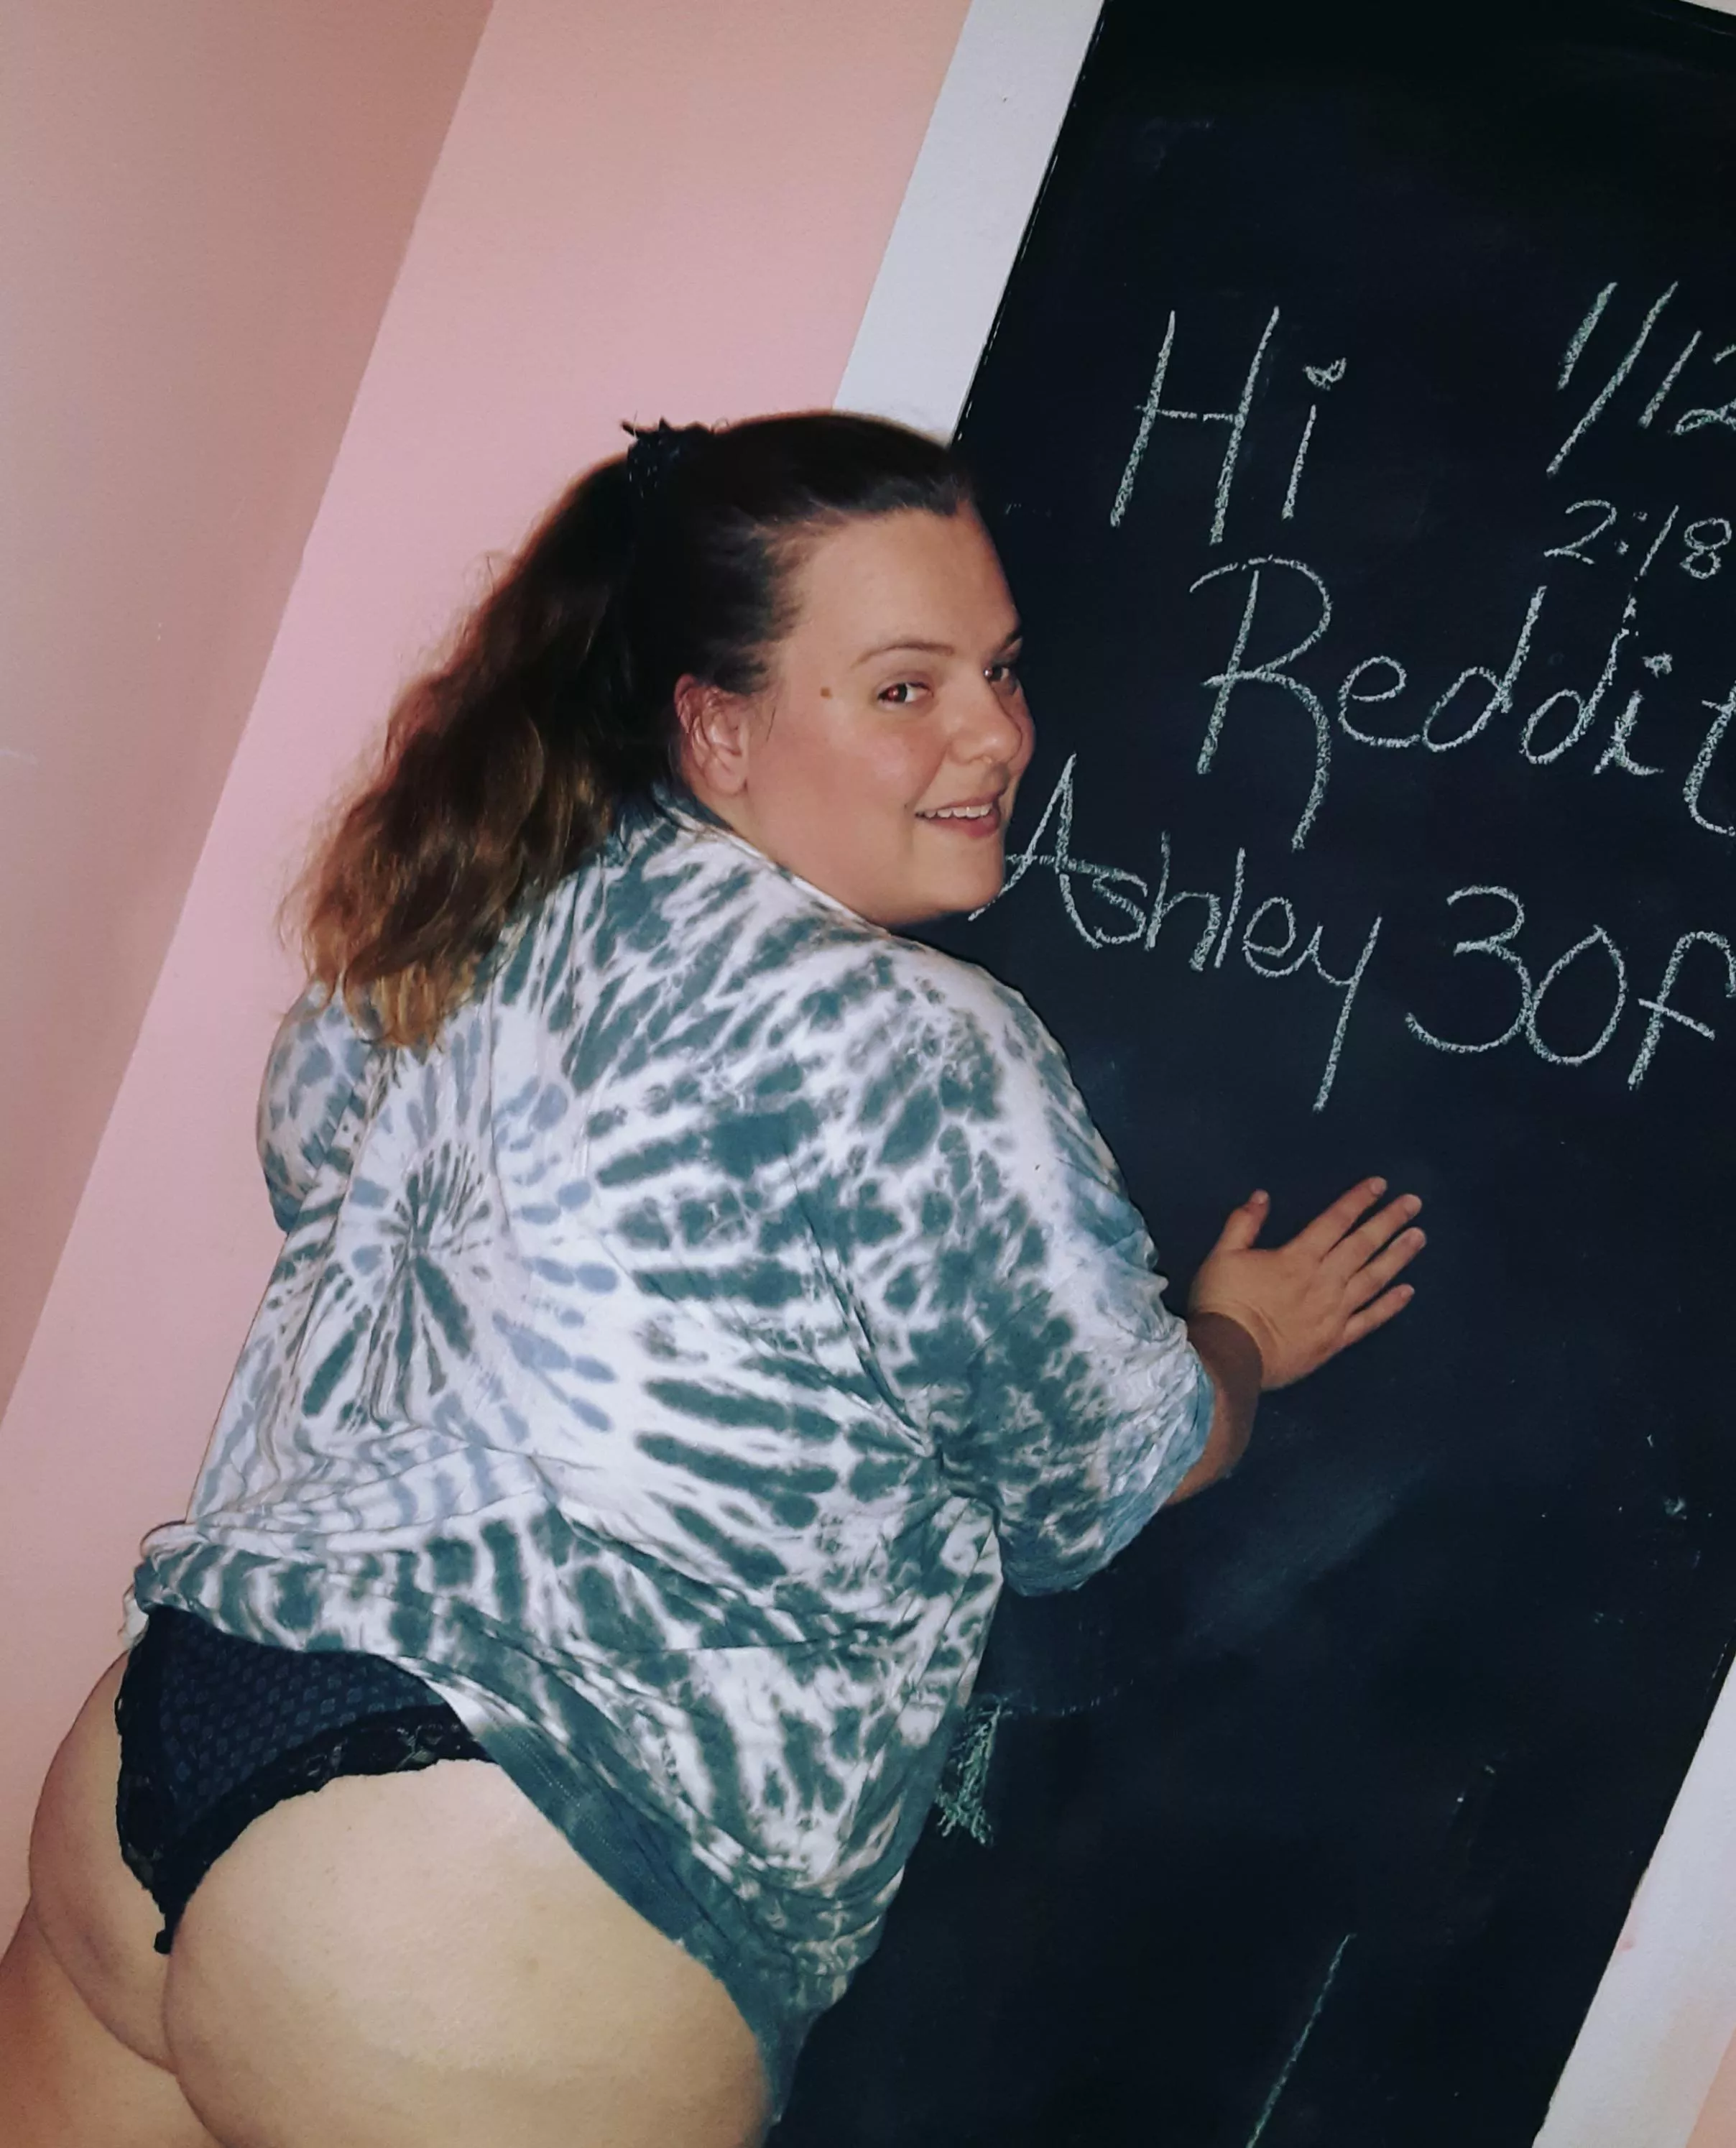 Hi
1/12
2:18
Reddit
Ashley 30f